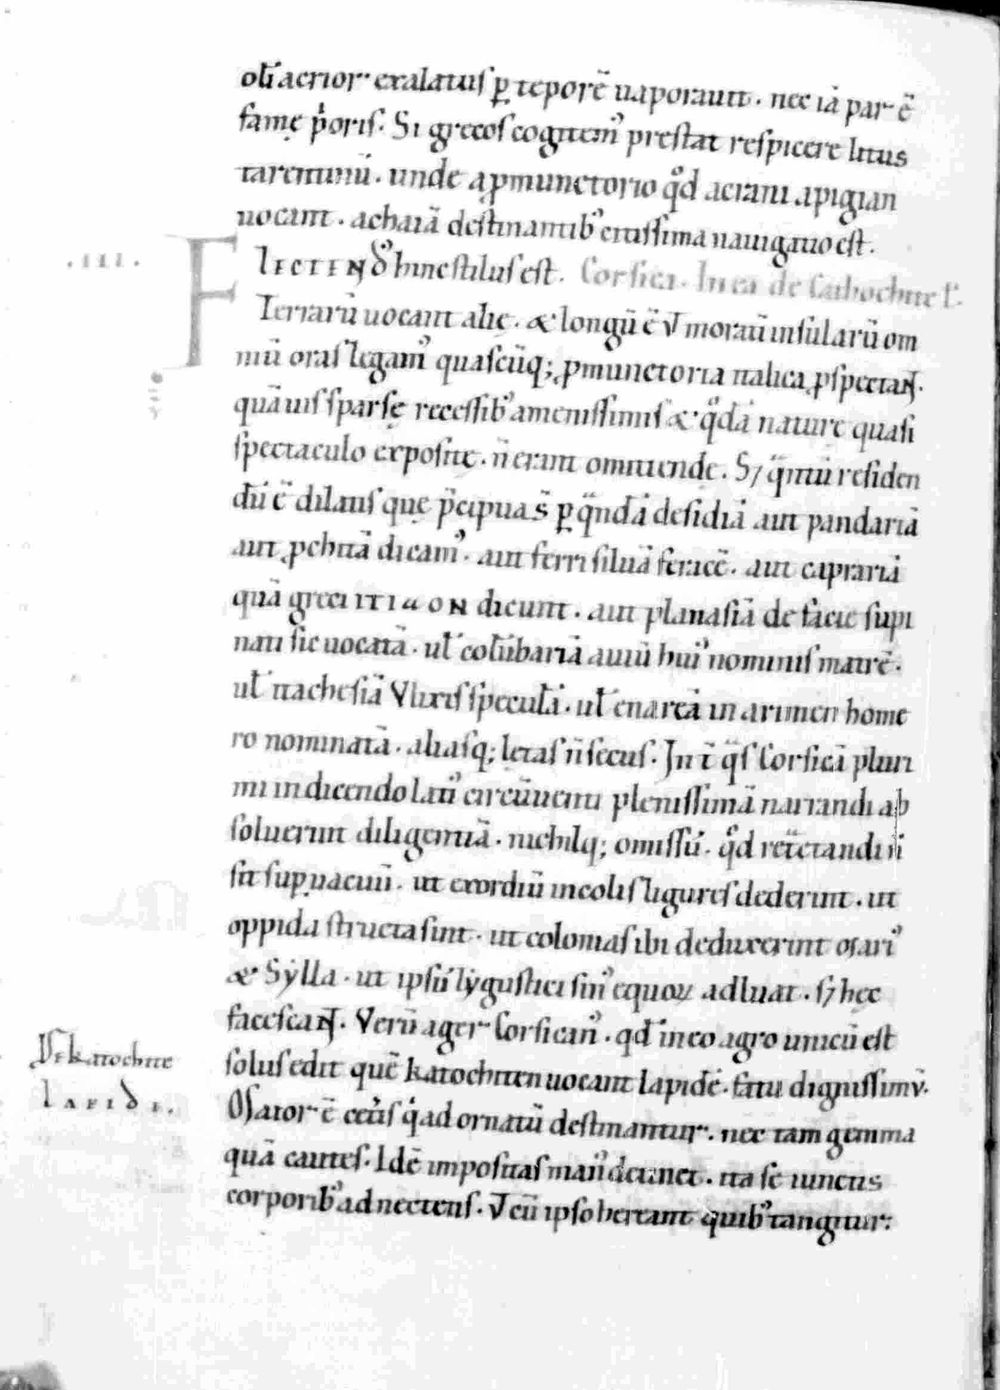 oli̅ acrior exalatus ꝑ teporē uaporauit. nec iā par ē
famę p̍oris. Si grecos cogitem᾿ prestat respicere litus
tarentinū. unde a ꝓmunctorio qd̊ acrani apigian
uocant. achaiā destinantib᾿ citissima nauigatio est.
.IIII. FLECTEND᾿ hinc stilus est. Corsica. In ea de catochite l'.
Terrarū uocant alię. & longū ē ut moratī insularū om
niū oras legam᾿ quascūq; ꝓmunctoria italica ꝓspectant.
quāuis sparsę recessib᾿ amenissimis & qdā naturę quasi
spectaculo expositę. n̄ erant omittendę. S; qm̄tū residen
dū ē dilatis que p̄cipua s̄ ꝑ qn̄dā desidiā aut pandariā
aut ꝓchitā dicam᾿. aut ferri siluā feracē. aut caprariā
quā greci ITIαON dicunt. aut planasiā de facie supi
nati sic uocatā. ul' colūbariā auiū hui᾿ nominis matrē.
ul' itachesiā Vlixis speculā. ul' enareā inarimen home
ro nominatā. aliasq; letas n̄ secus. In t̄ qs Corsicā pluri
mi in dicendo lati᾿ circūuenti plenissimā narrandi ab
soluerunt diligentiā. nichilq; omissū. qd̊ retrectandi n̄
sit sup̱uacuū. ut exordiū incolis ligures dederint. ut
oppida structa sint. ut colonias ibi deduxerint Mari᾿
& Sylla. ut ipsū lygustici sin᾿ equoꝝ adluat. s; hec
facescant. Verū ager Corsican᾿. qd̄ in eo agro unicū est
De katochite
solus edit quē katochiten uocant lapidē. fatu dignissimū.
lapide.
Maior ē cet̍is q̍ ad ornatū destinantur. nec tam gemma
quā cautes. Idē impositas man᾿ detinet. ita se iunctis
corporib᾿ adnectens. ut cū ipso hereant quib᾿ tangitur: